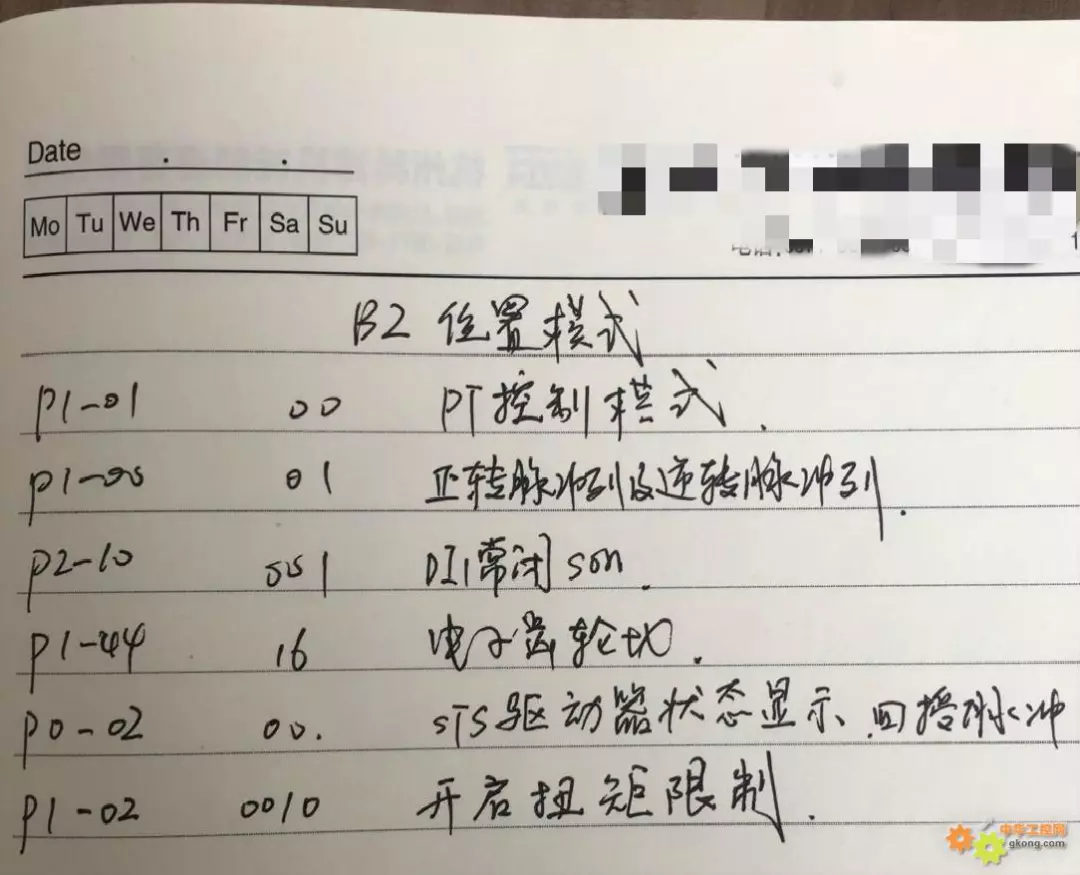 Date . .
Mo Tu We Th Fr Sa Su
电话:
B2 位置模式
P1-01 00 PT控制模式.
P1-00 01 正转脉冲列及逆转脉冲列.
P2-10 001 DI1常闭 son.
P1-44 16 电子齿轮比.
P0-02 00. STS驱动器状态显示、回授脉冲
P1-02 0010 开启扭矩限制.
中华工控网
gkong.com